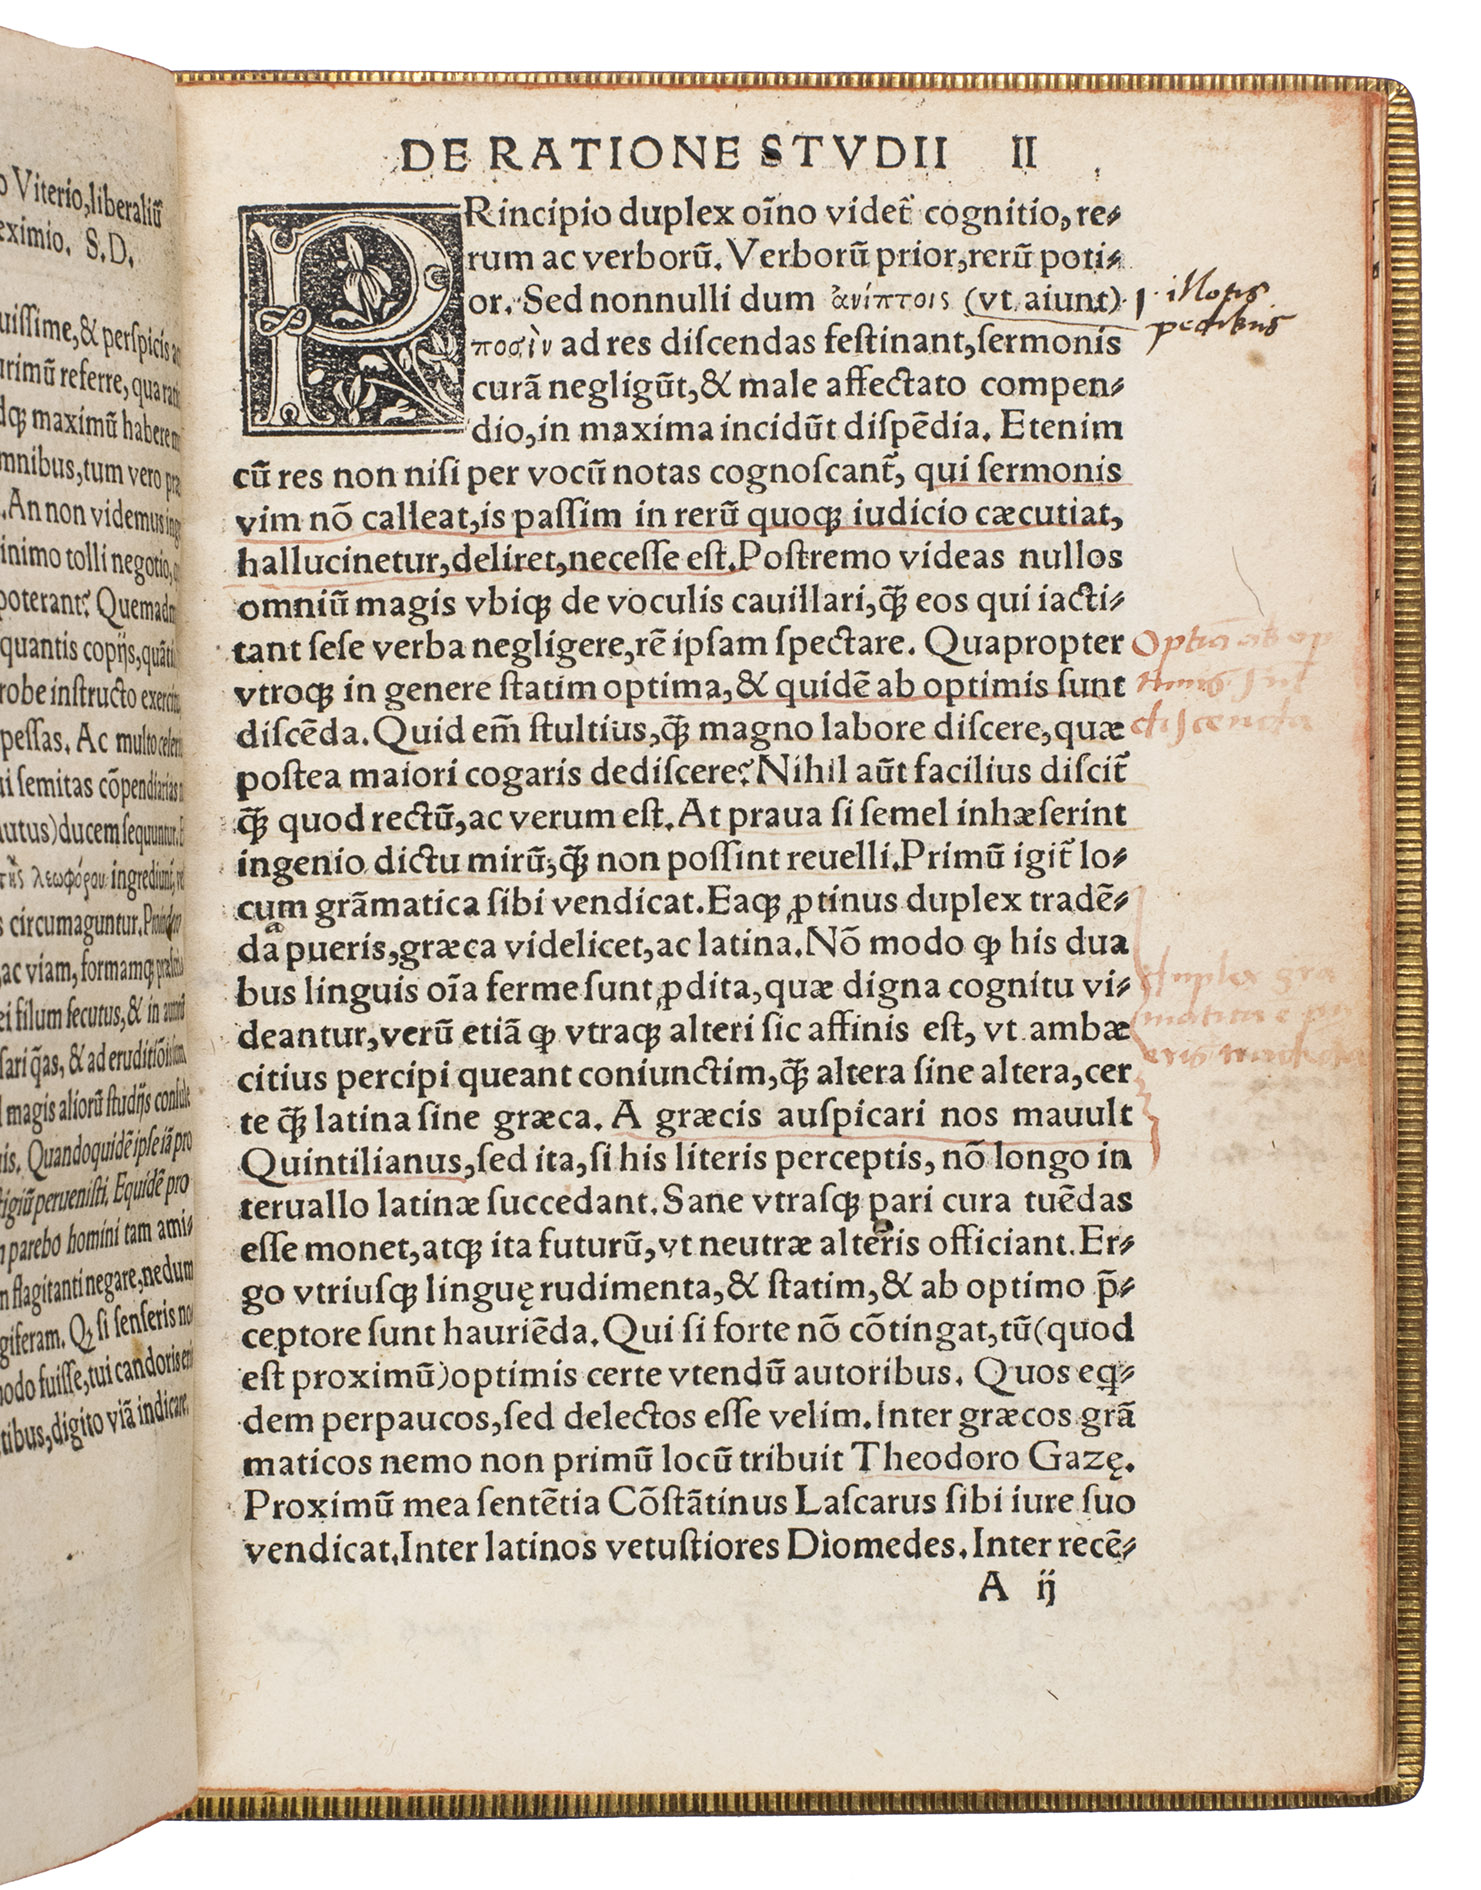 o Viterio,liberaliũ
eximio. S.D.
uissime,& perspicis
urimũ referre, qua
dq̃ maximũ habere
mnibus,tum vero
.An non videmus
inimo tolli negotio,
poterant? Quemad
quantis copijs,quãti
robe instructo
pessas. Ac multo
i semitas cõpendiarias
autus)ducem sequuntur.
της λεωφόρου ingrediũt
s circumaguntur.
,ac viam, formamq̃
ei filum secutus,& in
sari q̃as, & ad eruditiõis
magis aliorũ studijs
is. Quandoquidẽ ipse iã pro
tigiũ peruenisti. Equidẽ pro
n parebo homini tam ami⸗
n flagitanti negare,nedum
giferam. Q̃ si senseris no
nodo fuisse,tui candoris
tibus,digito viã indicare.
DE RATIONE STVDII II
PRincipio duplex oĩno videt̃ cognitio,re⸗
rum ac verborũ. Verborũ prior,rerũ poti⸗
or. Sed nonnulli dum ἀνίπτοις (vt aiunt)
ποσὶν ad res discendas festinant,sermonis
curã negligũt,& male affectato compen⸗
dio,in maxima incidũt dispẽdia. Etenim
cũ res non nisi per vocũ notas cognoscant̃, qui sermonis
vim nõ calleat,is passim in rerũ quoq̃ iudicio cæcutiat,
hallucinetur,deliret,necesse est.Postremo videas nullos
omniũ magis vbiq̃ de voculis cauillari,q̃ eos qui iacti⸗
tant sese verba negligere,rẽ ipsam spectare. Quapropter
vtroq̃ in genere statim optima,& quidẽ ab optimis sunt
discẽda. Quid em̃ stultius,q̃ magno labore discere,quæ
postea maiori cogaris dediscere? Nihil aũt facilius discit̃
q̃ quod rectũ,ac verum est. At praua si semel inhæserint
ingenio dictu mirũ,q̃ non possint reuelli.Primũ igit̃ lo⸗
cum grãmatica sibi vendicat.Eaq̃ ꝓtinus duplex tradẽ⸗
da pueris,græca videlicet,ac latina.Nõ modo ꝙ his dua
bus linguis oĩa ferme sunt ꝓdita,quæ digna cognitu vi⸗
deantur,verũ etiã ꝙ vtraq̃ alteri sic affinis est, vt ambæ
citius percipi queant coniunctim,q̃ altera sine altera,cer
te q̃ latina sine græca. A græcis auspicari nos mauult
Quintilianus,sed ita,si his literis perceptis, nõ longo in
teruallo latinæ succedant.Sane vtrasq̃ pari cura tuẽdas
esse monet,atq̃ ita futurũ,vt neutræ alteris officiant.Er⸗
go vtriusq̃ linguę rudimenta,& statim,& ab optimo p̃⸗
ceptore sunt hauriẽda.Qui si forte nõ cõtingat,tũ(quod
est proximũ)optimis certe vtendũ autoribus. Quos eq̃⸗
dem perpaucos,sed delectos esse velim.Inter græcos grã
maticos nemo non primũ locũ tribuit Theodoro Gazę.
Proximũ mea sentẽtia Cõstãtinus Lascarus sibi iure suo
vendicat.Inter latinos vetustiores Diomedes.Inter recẽ⸗
A ij
illotis
pedibus
Optĩa ab op
timis sũt
discenda
duplex grã
matica e pu
eris tradenda